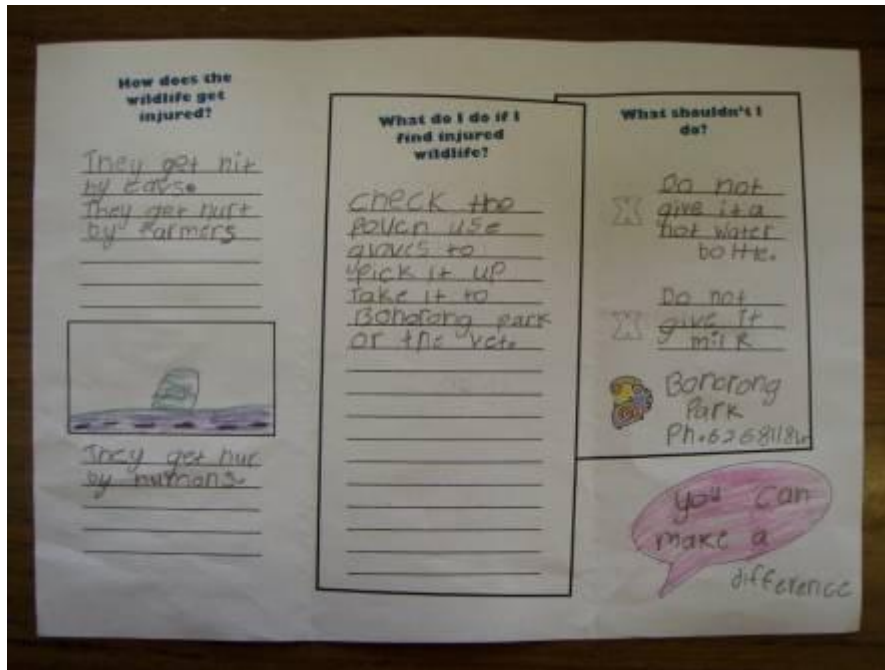 How does the
wildlife get
injured?
They get hit
by cars.
They get hurt
by Farmers
They get hur
by humans.
What do I do if I
find injured
wildlife?
check the
pouch use
gloves to
pick it up
Take it to
Bonorong park
or the vet.
What shouldn't I
do?
X
Do not
give it a
hot water
bottle.
X
Do not
give it
milk
Bonorong
Park
Ph.
you can
make a
difference